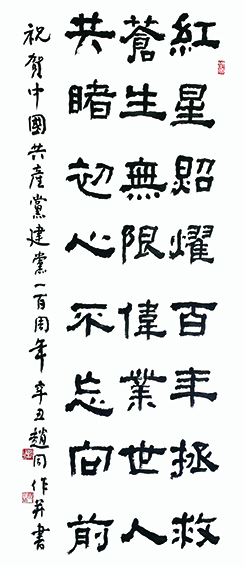 紅星照耀百年拯救
蒼生無限偉業世人
共睹初心不忘向前
祝賀中國共產黨建黨一百周年辛丑趙同作并書